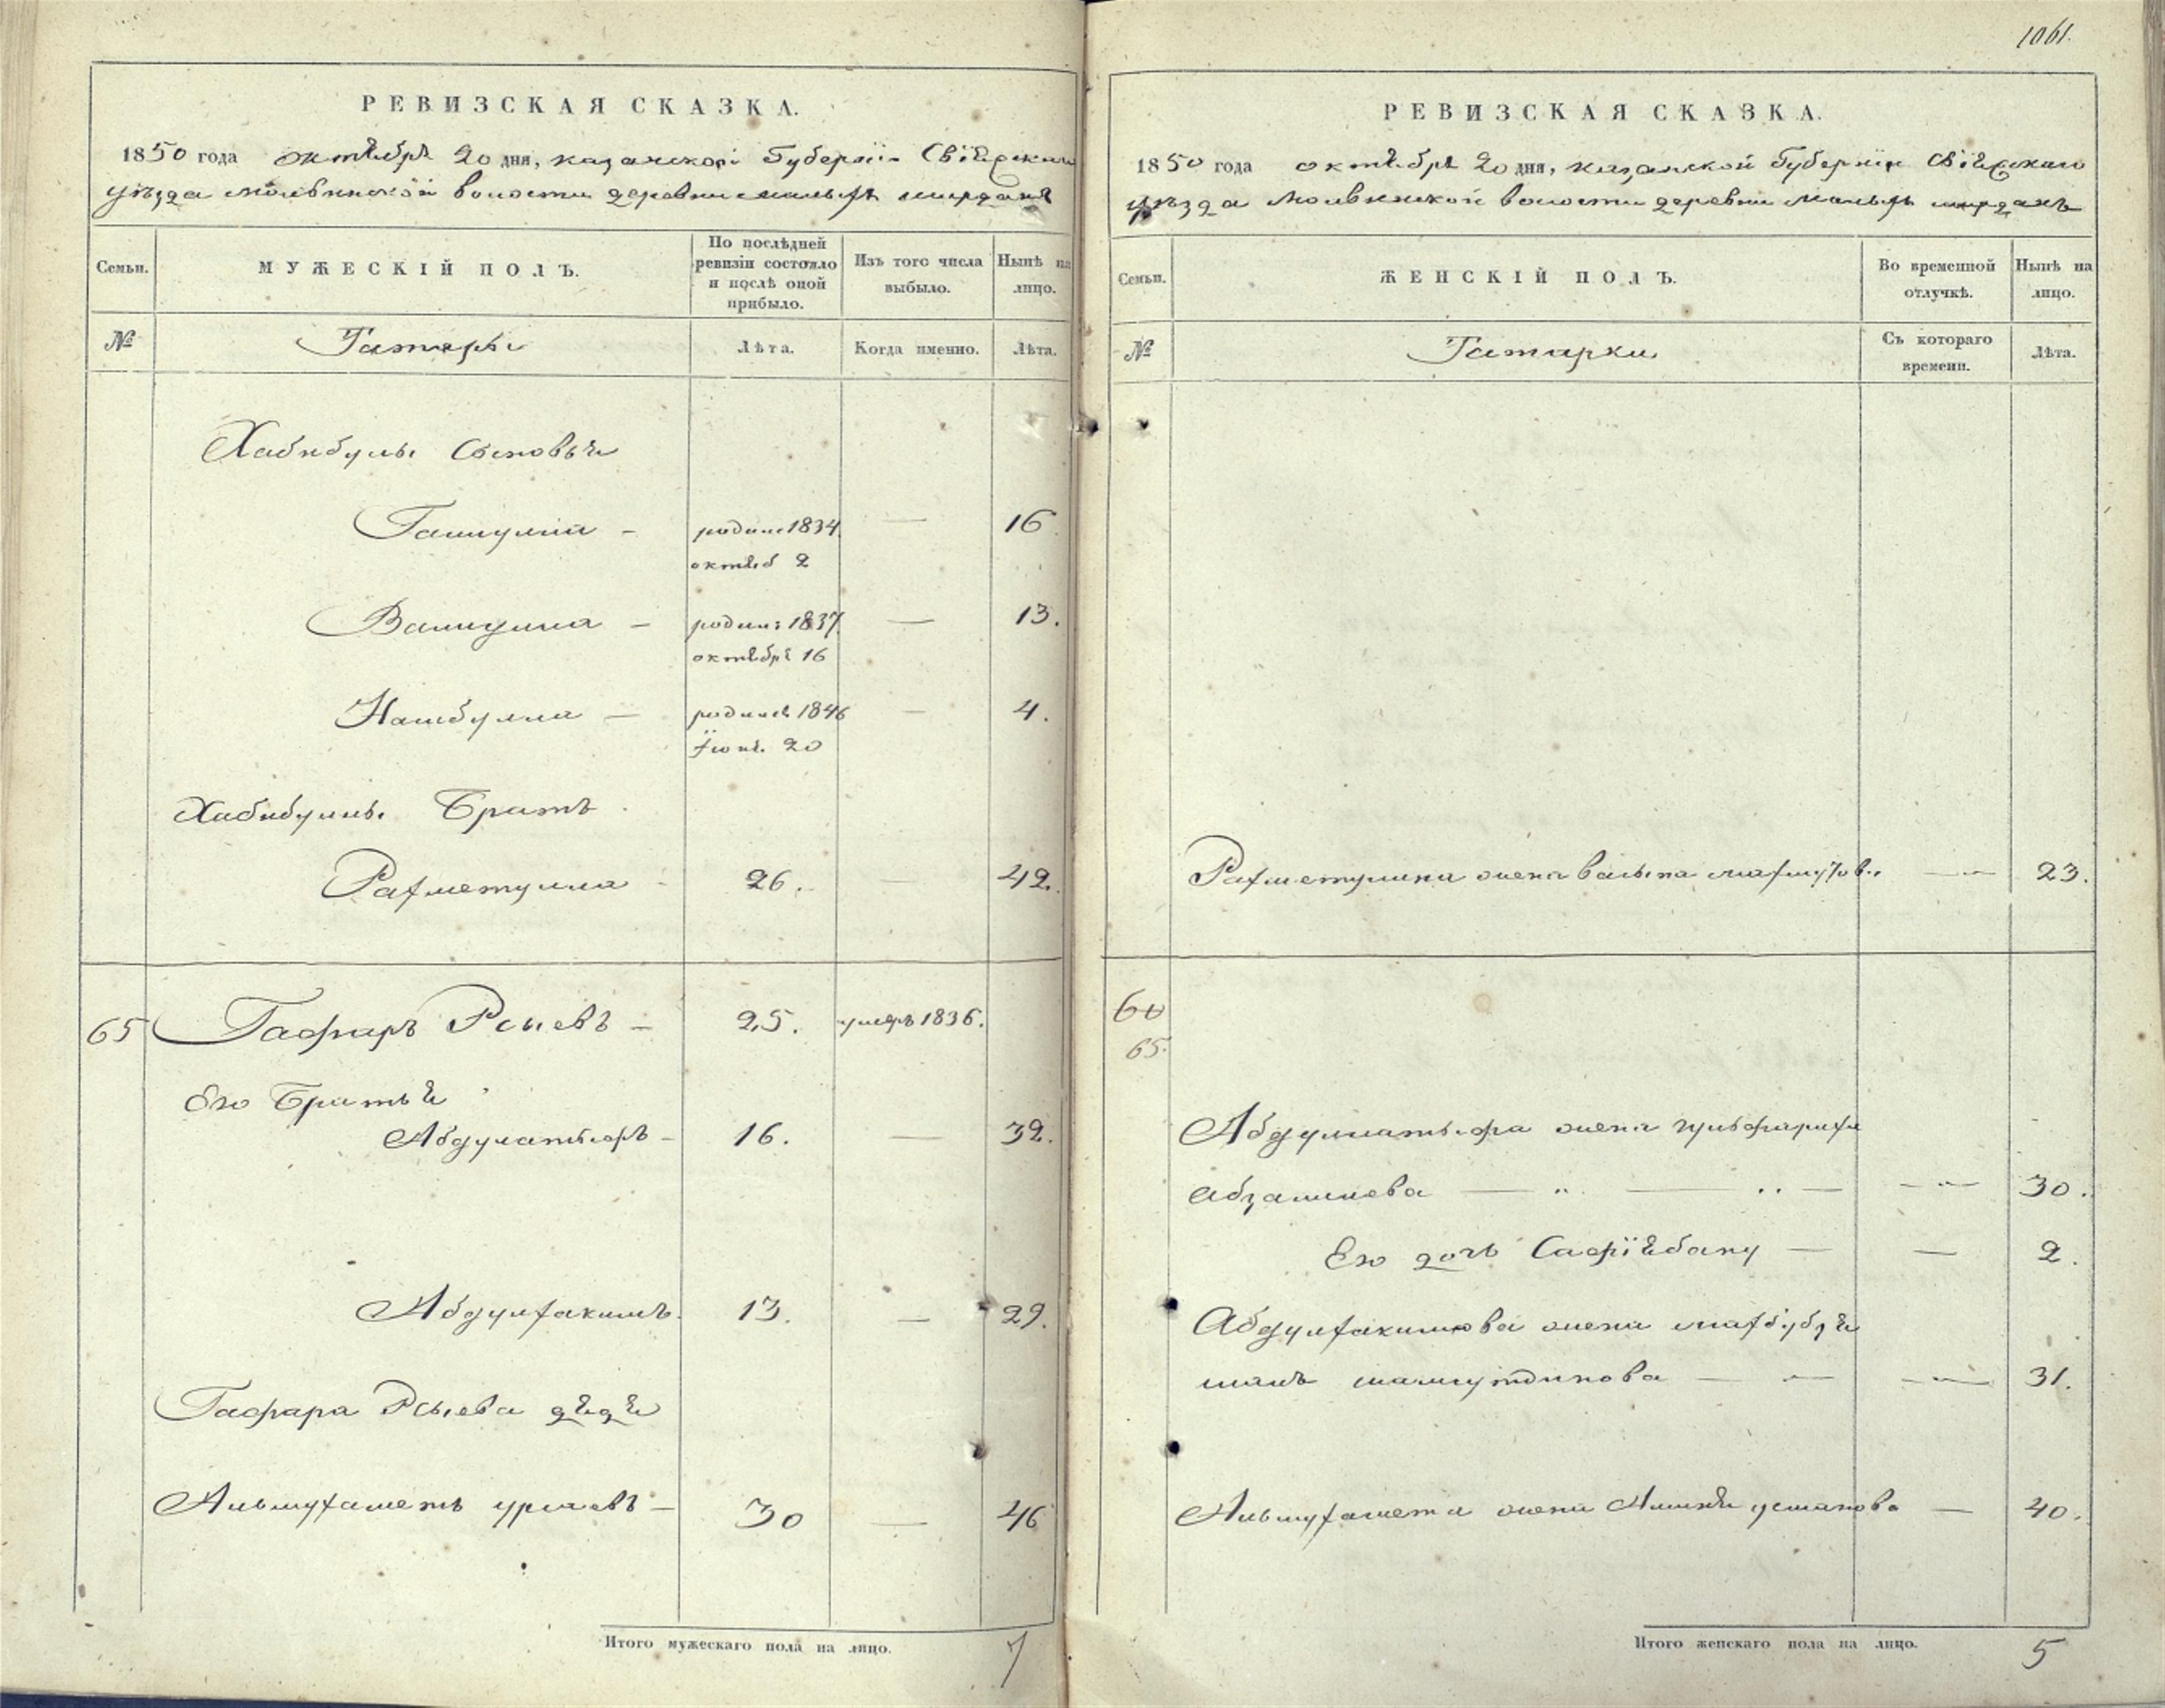 РЕВИЗСКАЯ СКАЗКА.
1850 года октября 20 дня, казанской Губернiи Свiяжскаго
уѣзда молвинской волости деревни малыхъ ширданъ
Семьи.
МУЖЕСКIЙ ПОЛЪ.
По послѣдней ревизiи состояло и послѣ оной прибыло.
Изъ того числа выбыло.
Нынѣ на лицо.
№
Татары
Лѣта.
Когда именно.
Лѣта.
Хабибулы Сыновья
родился 1834 — 16
октяб 2
Валиулла — родил: 1837 — 13.
октября 16
родился 1846 — 4.
Iюня. 20
Хабибуллы Братъ
Рахметулла - 26. — 42.
65 Гафаръ Рсыевъ — 25. умеръ 1836.
Его Братья
Абдулатыфъ - 16. — 32.
Абдулхакимъ. 13. — 29.
Гафара Рсыева дядя
Альмухаметъ урысевъ — 30 — 46
Итого мужескаго пола на лицо. 7
1061.
РЕВИЗСКАЯ СКАЗКА.
1850 года октября 20 дня, казанской Губернiи Свiяжскаго
уѣзда молвинской волости деревни малыхъ ширданъ
Семьи.
ЖЕНСКIЙ ПОЛЪ.
Во временной отлучкѣ.
Нынѣ на лицо.
№
Татарки
Съ котораго времени.
Лѣта.
Рахметуллина жена махмутов. — 23.
60
65.
Абдуллатыфа жена
— 30.
Его дочь Сафiябану — — 2.
Абдулхакимова жена махбубзя
— 31.
Альмухамета жена — 40.
Итого женскаго пола на лицо. 5